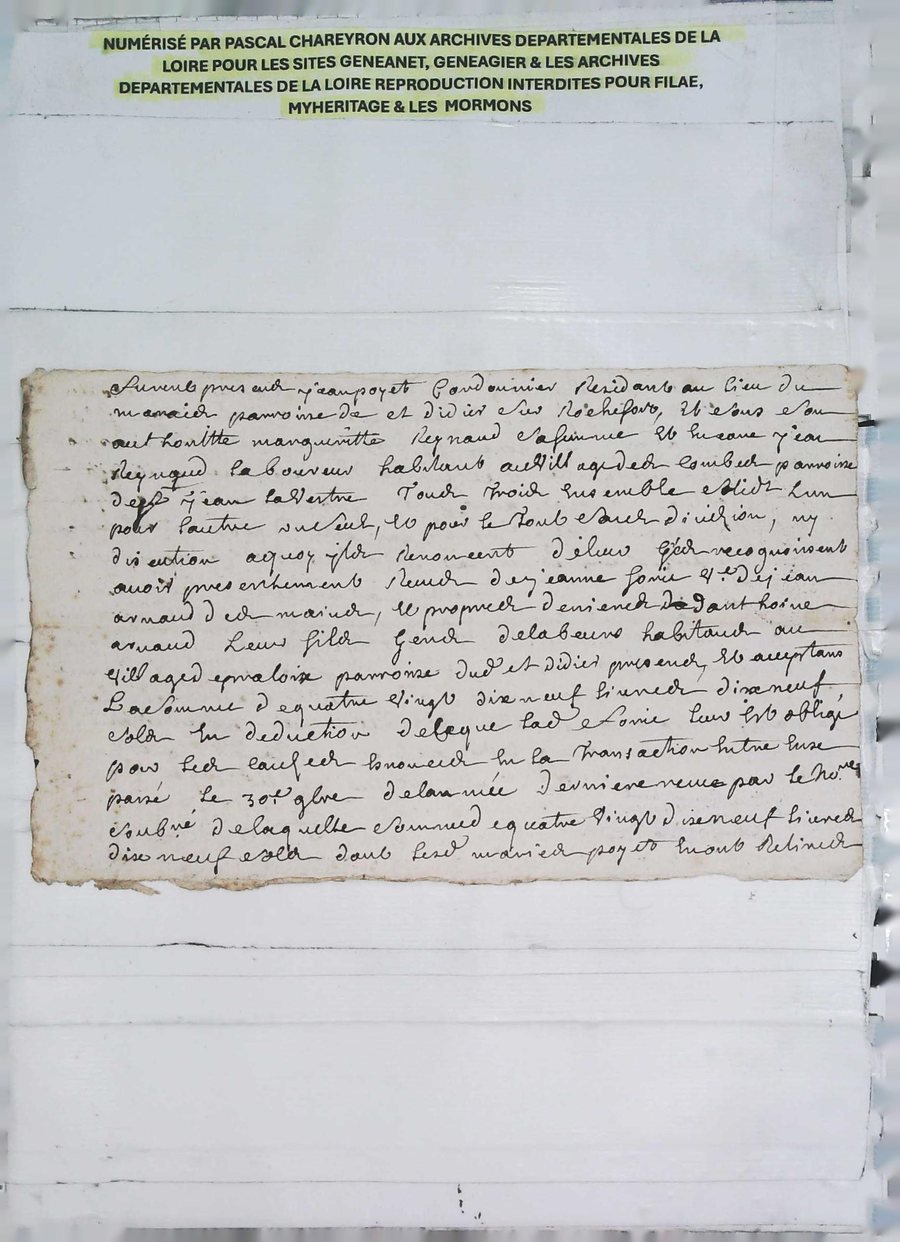 NUMÉRISÉ PAR PASCAL CHAREYRON AUX ARCHIVES DEPARTEMENTALES DE LA
LOIRE POUR LES SITES GENEANET, GENEAGIER & LES ARCHIVES
DEPARTEMENTALES DE LA LOIRE REPRODUCTION INTERDITES POUR FILAE,
MYHERITAGE & LES MORMONS
furent presends jean poyet Cordonnier Residant au lieu du
maraids parroisse de st didier sur Rochefort, Et sous son
authoritte margueritte Reynaud sa femme Et encore jean
Reynaud laboureur habitant au Village des Combes parroisse
de st jean la Vestre Tous Trois Ensemble solidt L'un
pour l'autre un seul, Et pour le Tout sans division, ny
discution aquoy ils Renoncent d'eleur Gré recognoissent
avoir presentement Receu de jeanne forie Ve de jean
arnaud des mains, Et propres deniers d'anthoine
arnaud Leur fils Gens de labeurs habitands au
Village d epraloix parroisse dud st didier presend, Et acceptans
La somme de quatre Vingt dix neuf livres dix neuf
sols En deduction de ce que lad forie leur Est obligé
pour les causes Enoncés En la Transaction Entre Eux
passé le 30e 9bre de l'année derniere receue par le Nore
soubné de laquelle somme de quatre Vingt dix neuf livres
dix neuf sols dont lesd mariés poyet En ont Retirés